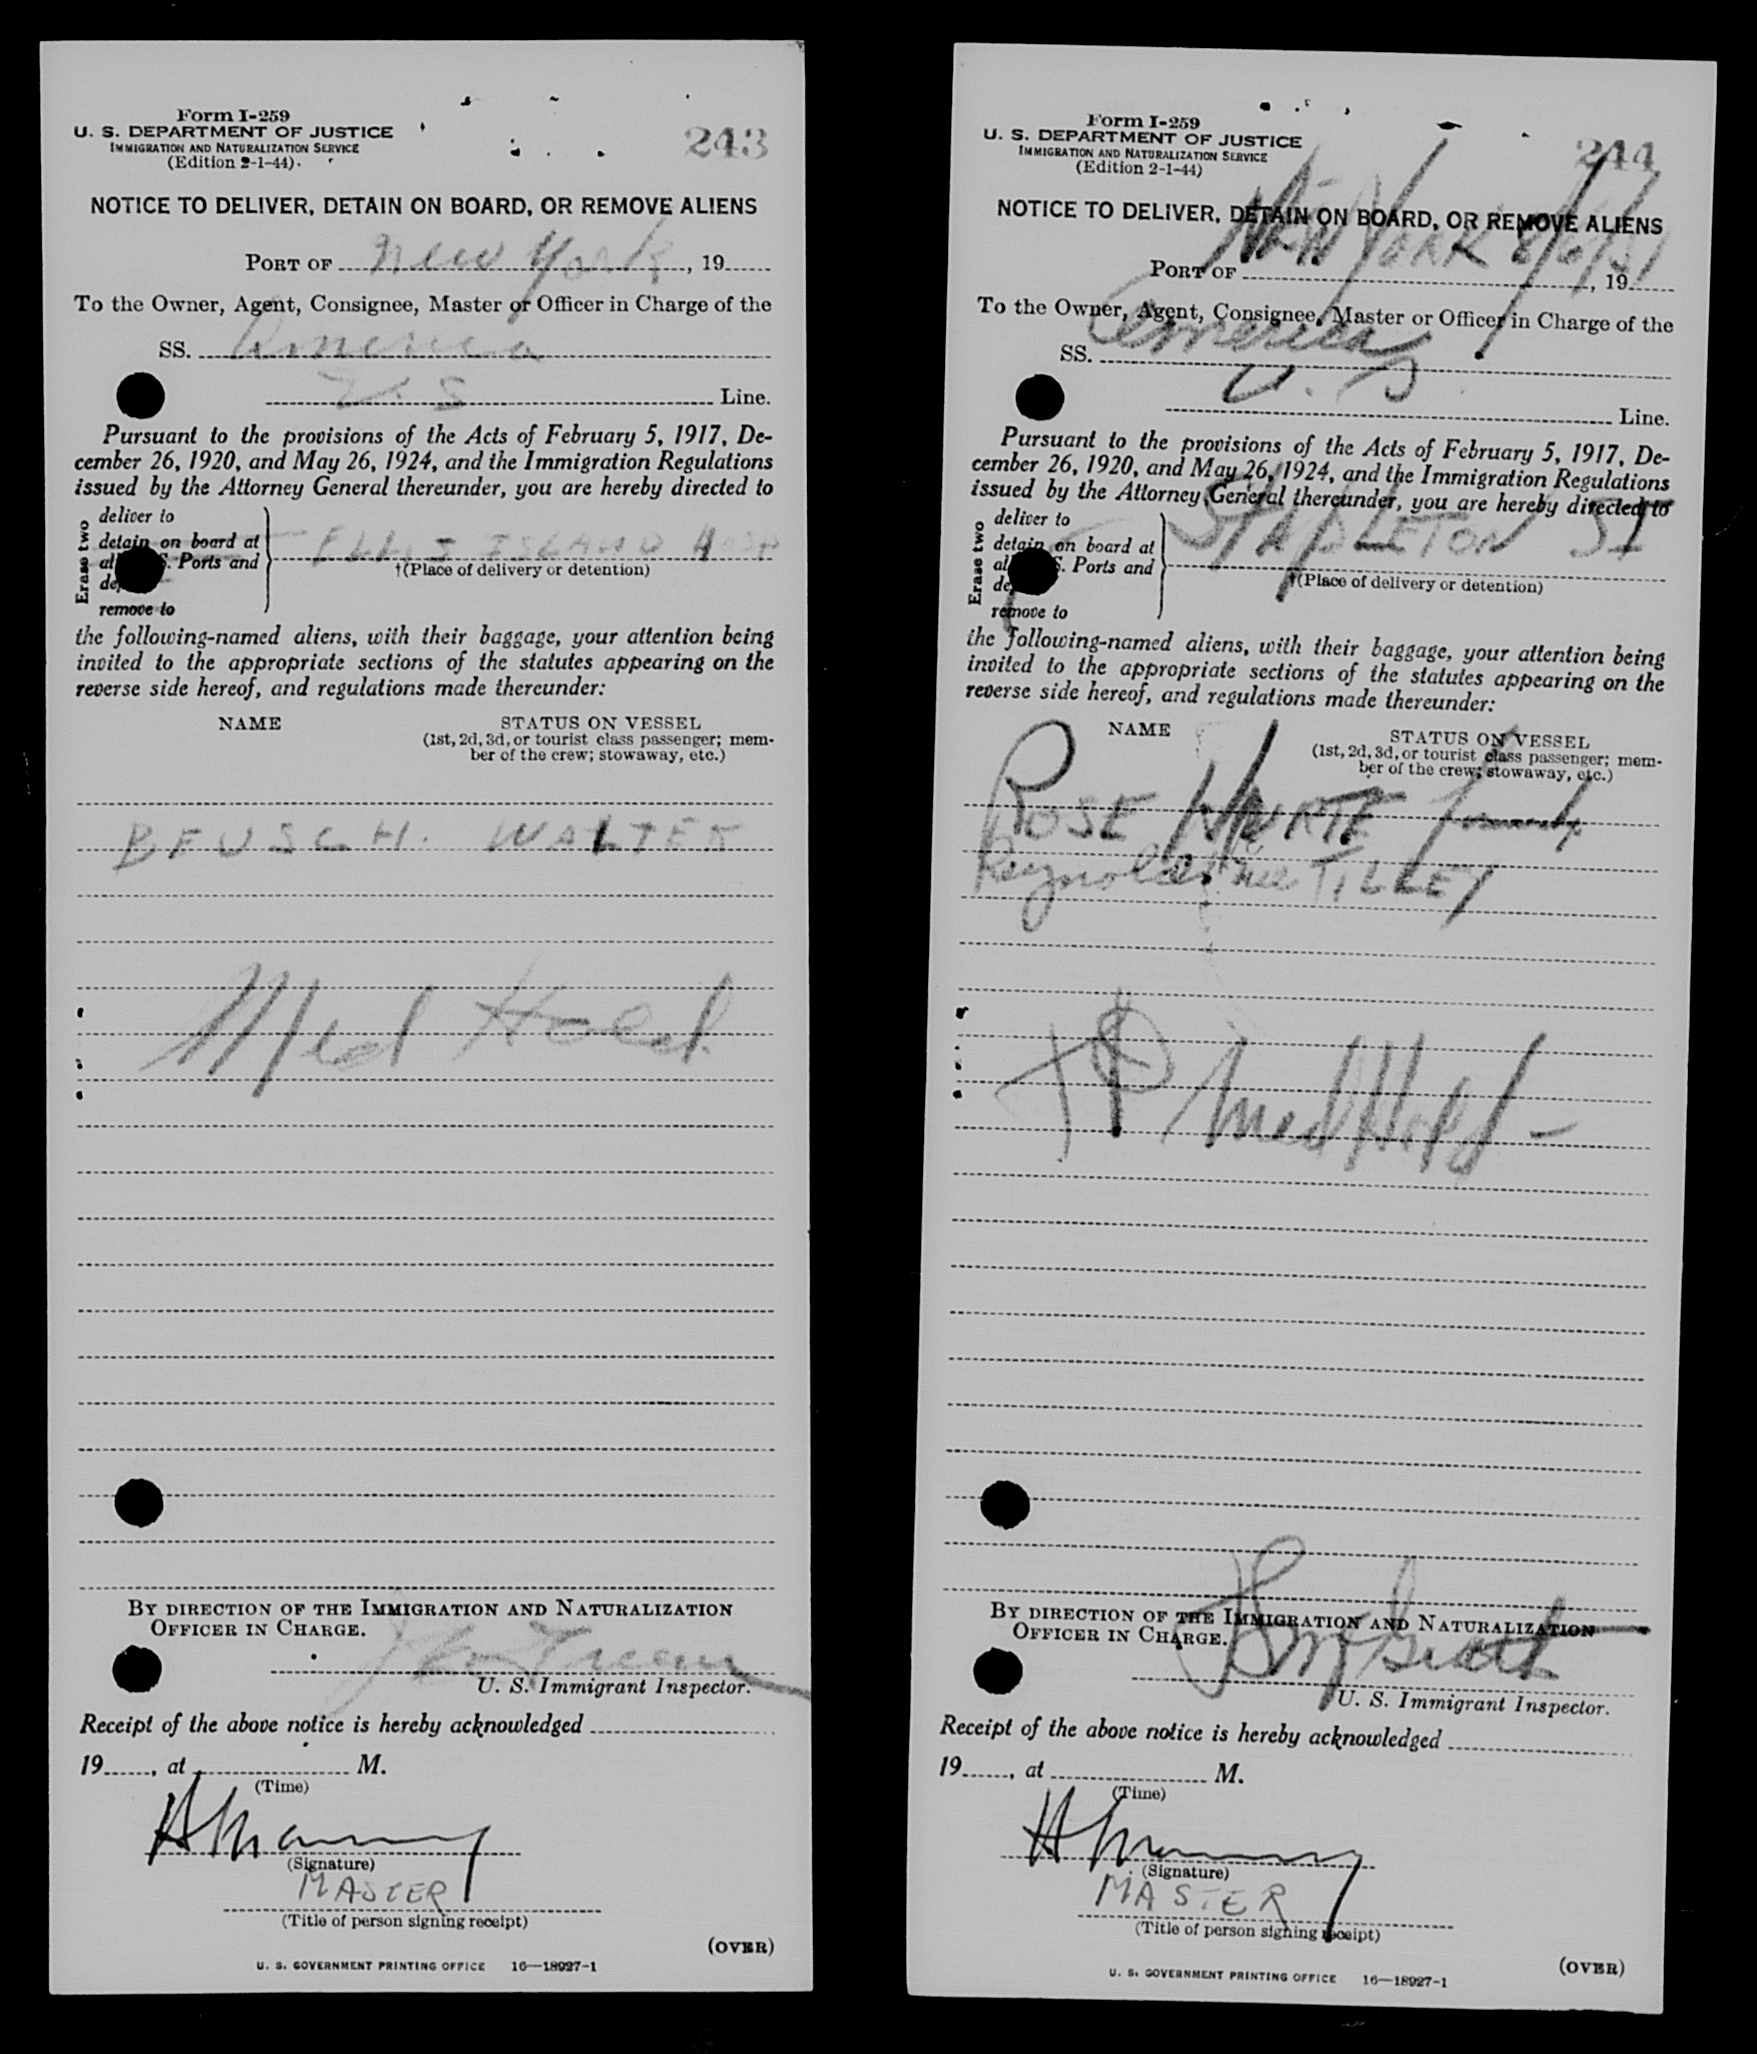 Form I-259
U. S. DEPARTMENT OF JUSTICE
IMMIGRATION AND NATURALIZATION SERVICE
(Edition 2-1-44)
243
NOTICE TO DELIVER, DETAIN ON BOARD, OR REMOVE ALIENS
PORT OF New York, 19
To the Owner, Agent, Consignee, Master or Officer in Charge of the
SS. America
U. S Line.
Pursuant to the provisions of the Acts of February 5, 1917, De-
cember 26, 1920, and May 26, 1924, and the Immigration Regulations
issued by the Attorney General thereunder, you are hereby directed to
Erase two
deliver to
detain on board at
S. Ports and
remove to
ELLIS ISLAND HOSP
†(Place of delivery or detention)
the following-named aliens, with their baggage, your attention being
invited to the appropriate sections of the statutes appearing on the
reverse side hereof, and regulations made thereunder:
NAME
STATUS ON VESSEL
(1st, 2d, 3d, or tourist class passenger; mem-
ber of the crew; stowaway, etc.)
BEUSCH. WALTER
Med Hold
BY DIRECTION OF THE IMMIGRATION AND NATURALIZATION
OFFICER IN CHARGE.
U. S. Immigrant Inspector.
Receipt of the above notice is hereby acknowledged
19, at M.
(Time)
(Signature)
MASTER
(Title of person signing receipt)
(OVER)
U. S. GOVERNMENT PRINTING OFFICE 16—18927-1
Form I-259
U. S. DEPARTMENT OF JUSTICE
IMMIGRATION AND NATURALIZATION SERVICE
(Edition 2-1-44)
244
NOTICE TO DELIVER, DETAIN ON BOARD, OR REMOVE ALIENS
PORT OF New York 8/6/51, 19
To the Owner, Agent, Consignee, Master or Officer in Charge of the
SS. America
U. S. Line.
Pursuant to the provisions of the Acts of February 5, 1917, De-
cember 26, 1920, and May 26, 1924, and the Immigration Regulations
issued by the Attorney General thereunder, you are hereby directed to
Erase two
deliver to
detain on board at
S. Ports and
remove to
STAPLETON SI
†(Place of delivery or detention)
the following-named aliens, with their baggage, your attention being
invited to the appropriate sections of the statutes appearing on the
reverse side hereof, and regulations made thereunder:
NAME
STATUS ON VESSEL
(1st, 2d, 3d, or tourist class passenger; mem-
ber of the crew; stowaway, etc.)
ROSE formerly
Reynolds nee TILLEY
Med Hold -
BY DIRECTION OF THE IMMIGRATION AND NATURALIZATION
OFFICER IN CHARGE.
U. S. Immigrant Inspector.
Receipt of the above notice is hereby acknowledged
19, at M.
(Time)
(Signature)
MASTER
(Title of person signing receipt)
(OVER)
U. S. GOVERNMENT PRINTING OFFICE 16—18927-1